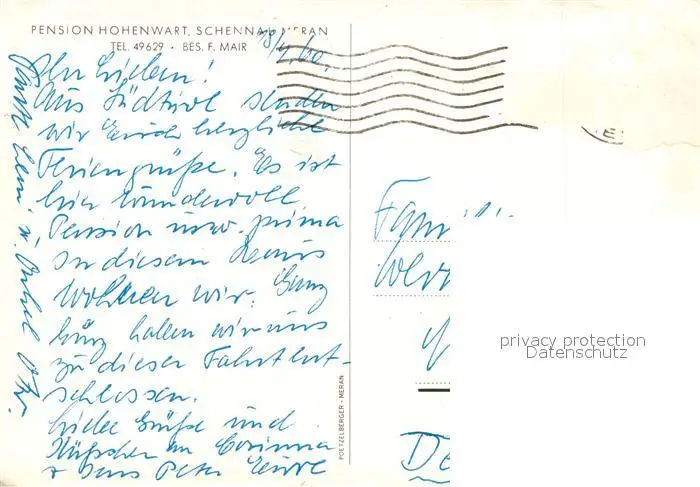 PENSION HOHENWART, SCHENNA / MERAN
TEL. 49629 · BES. F. MAIR
Ihr Lieben!
Aus Südtirol senden
wir Euch herzliche
Feriengrüße. Es ist
hier wundervoll,
Pension usw. prima
In diesem Haus
wohnen wir. Ganz
kurz haben wir uns
zu dieser Fahrt ent-
schlossen.
Liebe Grüße und
Küßchen an Corinna
+ Jens Peter Eure
Tante Leni u. Onkel
POETZELBERGER - MERAN
Fami
Wer
privacy protection
Datenschutz